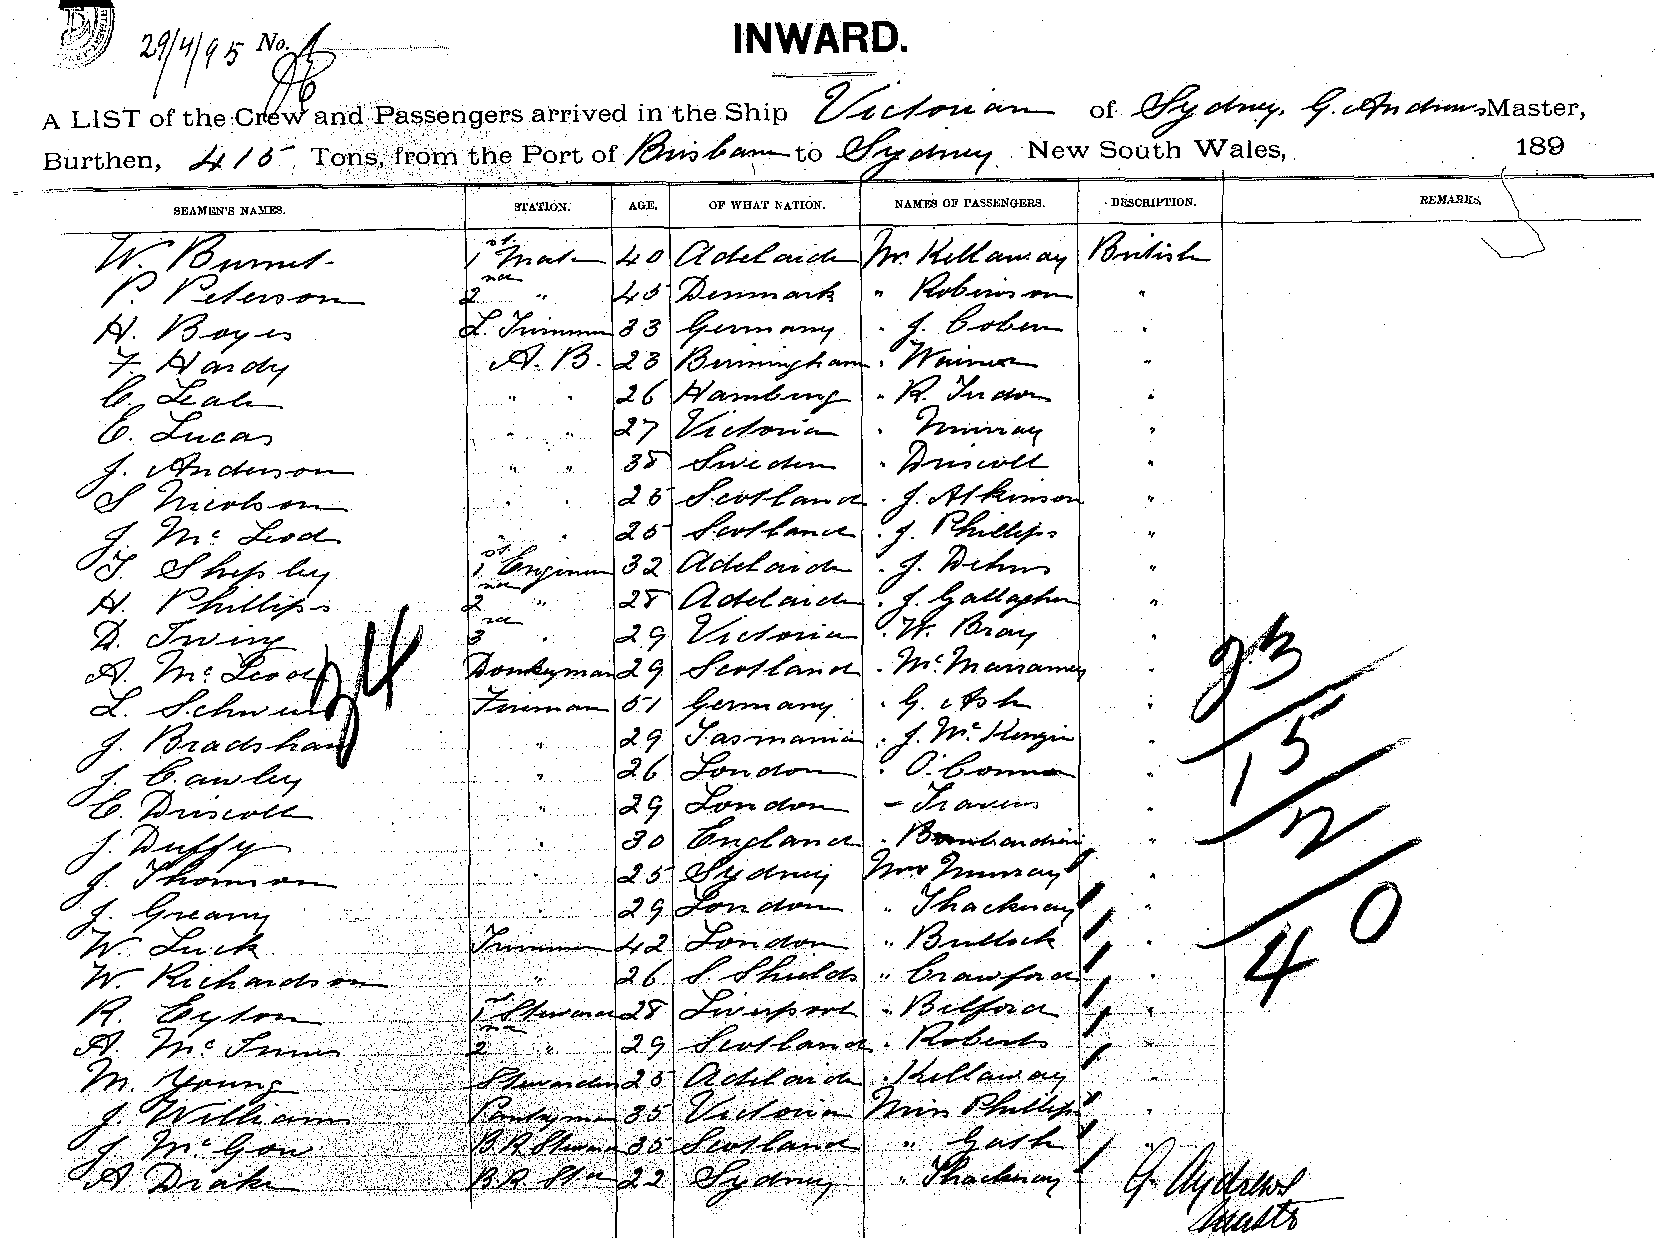 29/4/95 No.
INWARD.
A LIST of the Crew and Passengers arrived in the Ship Victorian of Sydney, G. Andrews Master,
Burthen, 415 Tons, from the Port of Brisbane to Sydney New South Wales, 189
SEAMEN'S NAMES. STATION. AGE. OF WHAT NATION. NAMES OF PASSENGERS. DESCRIPTION. REMARKS.
W. Burnet 1st Mate 40 Adelaide Mr Kellaway British
P. Peterson 2nd " 45 Denmark " Robinson "
H. Boyes L. Trimmer 33 Germany " J. Coben "
F. Hardy A. B. 23 Birmingham " "
C. Leale " " 26 Hamburg " R. "
E. Lucas " " 27 Victoria " Murray "
J. Anderson " " 38 Sweden " Driscoll "
S Nicolson " " 25 Scotland " J. Atkinson "
J. McLeod " " 25 Scotland " J. Phillips "
T. Shepley 1st Engineer 32 Adelaide " J. "
H. Phillips 2nd " 28 Adelaide " J. Gallagher "
D. Irving 3rd " 29 Victoria " W. Bray "
A. McLeod Donkeyman 29 Scotland " McMarramey "
L. Fireman 51 Germany " G. Ash "
J. Bradshaw " 29 Tasmania " J. McKenzie "
J. Cawley " 26 London " O'Connor "
E. Driscoll " 29 London - Travers "
J. Duffy " 30 England " "
J. Thomson " 25 Sydney Mrs Murray "
J. Greamy " 29 London " Thackway "
W. Luck Trimmer 42 London " Bullock "
W. Richardson " 26 S Shields " Crawford "
R. Eyton 1st Steward 28 Liverpool " Belford "
A. McInnes 2nd " 29 Scotland " Roberts "
M. Young Stewardess 25 Adelaide " Kellaway "
J. Williams Pantryman 35 Victoria Miss Phillips "
J. McGow B.R Steward 35 Scotland " Gash "
A Drake B.R. Stew 22 Sydney " Thackway
24
23
15
2
40
G. Andrews
Master